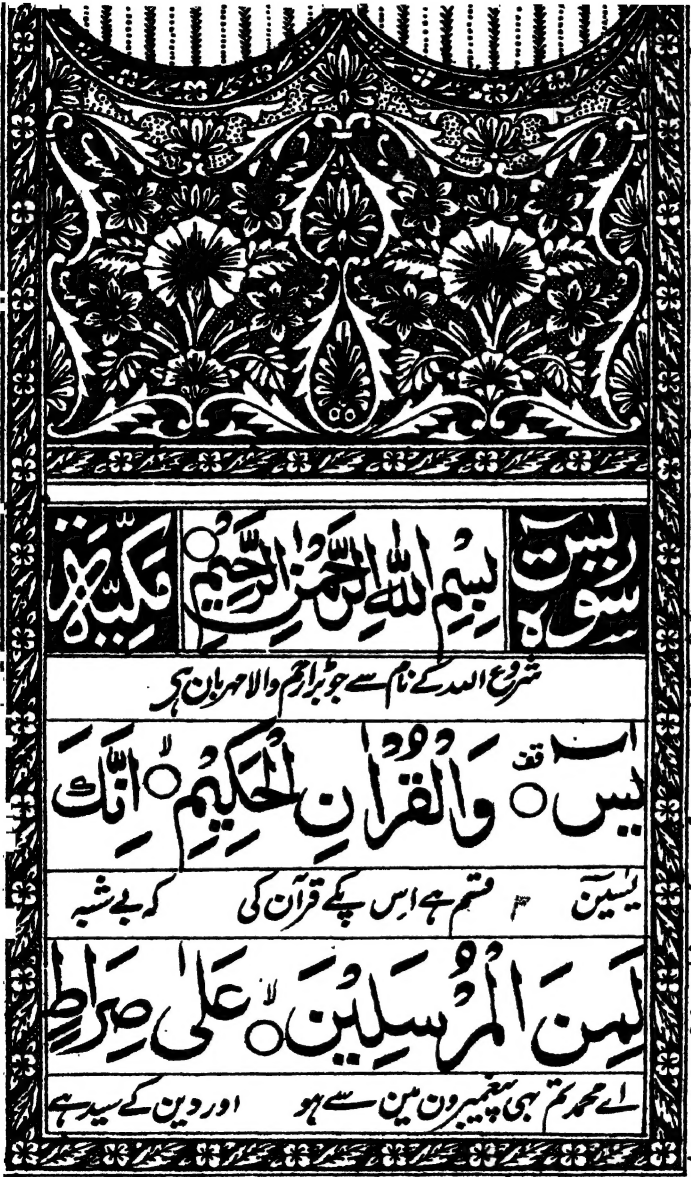 سورة يٰسٓ بِسْمِ اللّٰهِ الرَّحْمٰنِ الرَّحِيْمِ ○ مَكِّيَّة
شروع اللہ کے نام سے جو بڑا رحم والا مہربان ہی
يٰسٓ ○ قف وَالْقُرْاٰنِ الْحَكِيْمِ ○ لا اِنَّكَ
یٰسین ۳ قسم ہے اس پکے قرآن کی کہ بے شبہ
لَمِنَ الْمُرْسَلِيْنَ ○ لا عَلٰى صِرَاطٍ
اے محمد تم بھی پیغمبرون مین سے ہو اور دین کے سیدہے